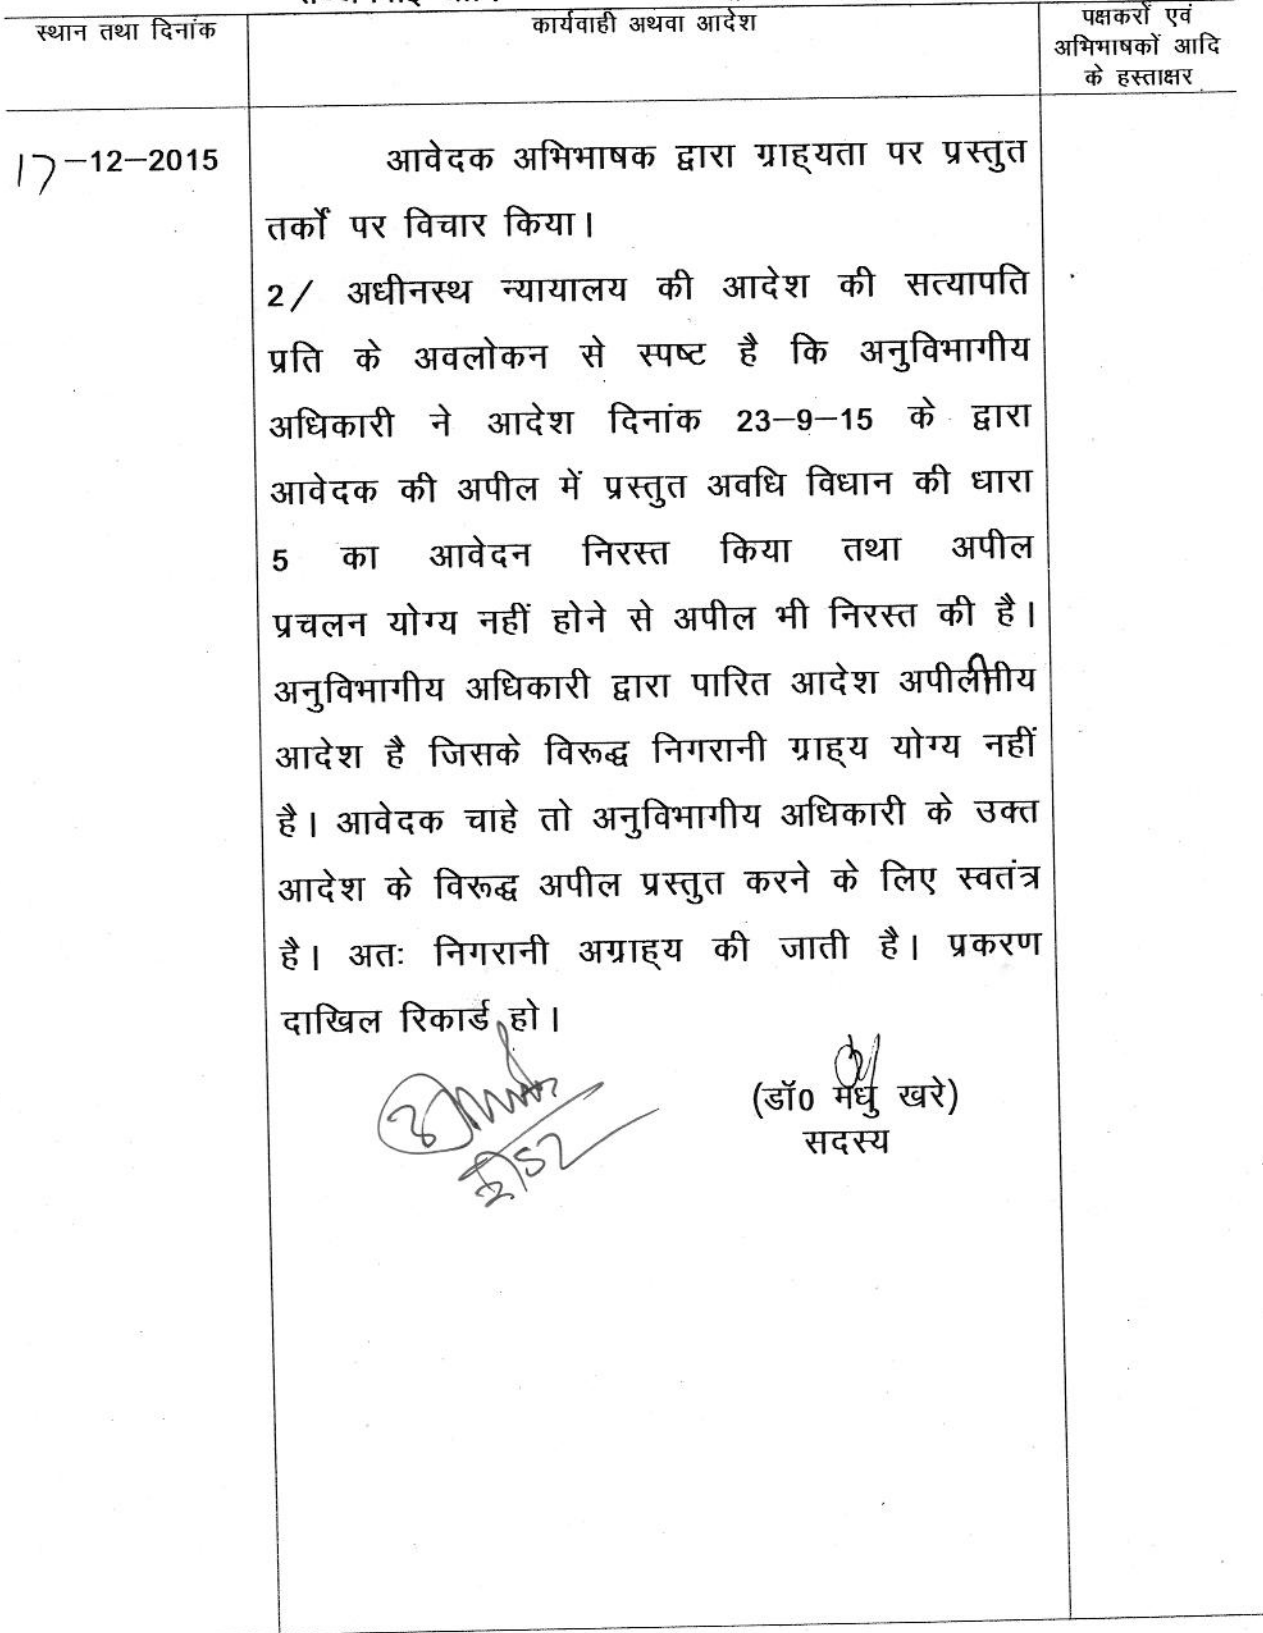 स्थान तथा दिनांक
कार्यवाही अथवा आदेश
पक्षकरों एवं
अभिभाषकों आदि
के हस्ताक्षर
17-12-2015
आवेदक अभिभाषक द्वारा ग्राह्यता पर प्रस्तुत
तर्कों पर विचार किया।
2/ अधीनस्थ न्यायालय की आदेश की सत्यापति
प्रति के अवलोकन से स्पष्ट है कि अनुविभागीय
अधिकारी ने आदेश दिनांक 23-9-15 के द्वारा
आवेदक की अपील में प्रस्तुत अवधि विधान की धारा
5 का आवेदन निरस्त किया तथा अपील
प्रचलन योग्य नहीं होने से अपील भी निरस्त की है।
अनुविभागीय अधिकारी द्वारा पारित आदेश
आदेश है जिसके विरूद्ध निगरानी ग्राह्य योग्य नहीं
है। आवेदक चाहे तो अनुविभागीय अधिकारी के उक्त
आदेश के विरूद्ध अपील प्रस्तुत करने के लिए स्वतंत्र
है। अतः निगरानी अग्राह्य की जाती है। प्रकरण
दाखिल रिकार्ड हो।
(डॉ0 मधु खरे)
सदस्य